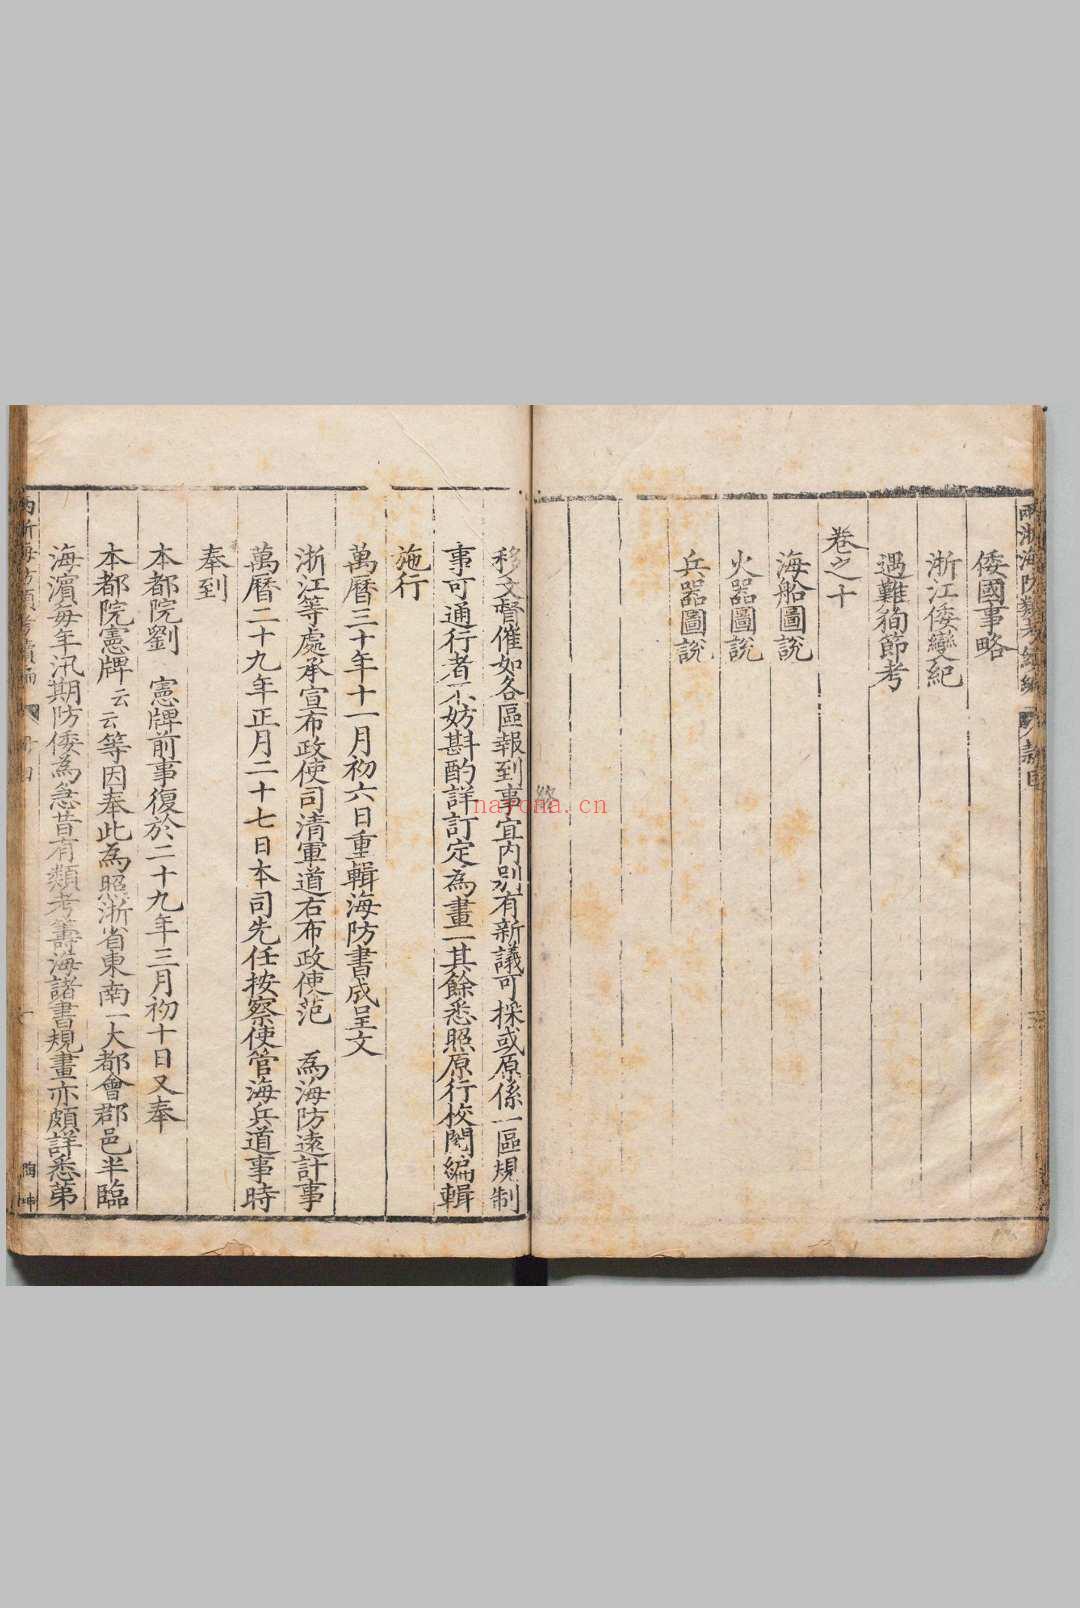 倭國事略
浙江倭變紀
遇難殉節考
卷之十
海船圖說
火器圖說
兵器圖說
終
移文督催如各區報到事宜內別有新議可採或原係一區規制
事可通行者不妨斟酌詳訂定為畫一其餘悉照原行校閱編輯
施行
萬曆三十年十一月初六日重輯海防書成呈文
浙江等處承宣布政使司清軍道右布政使范 為海防遠計事
萬曆二十九年正月二十七日本司先任按察使管海兵道事時
奉到
本都院劉 憲牌前事復於二十九年三月初十日又奉
本都院憲牌云云等因奉此為照浙省東南一大都會郡邑半臨
海濱每年汛期防倭為急昔有類考籌海諸書規畫亦頗詳悉第
兩浙海防類考續編
nayona.cn